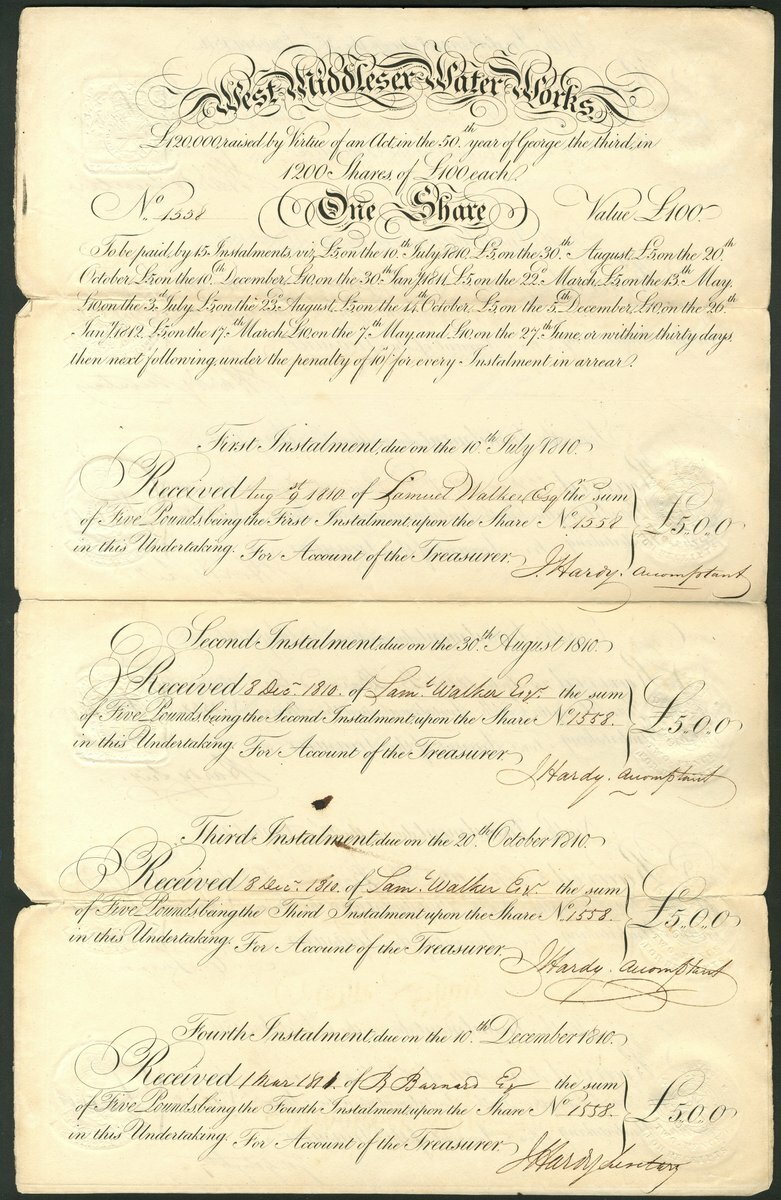 West Middlesex Water Works.
£120,000, raised by Virtue of an Act, in the 50.th year of George the third, in
1200 Shares, of £100 each.
No. 1558 One Share Value £100.
To be paid, by 15 Instalments, viz. £5, on the 10.th July 1810, £5, on the 30.th August, £5, on the 20.th
October, £5, on the 10.th December, £10, on the 30.th Jany. 1811, £5, on the 22.d March, £5, on the 13.th May,
£10, on the 3.d July, £5, on the 23.d August, £5, on the 14.th October, £5, on the 5.th December, £10, on the 26.th
Jany. 1812, £5, on the 17.th March, £10, on the 7.th May, and £10, on the 27.th June, or within thirty days,
then next following, under the penalty of 10/ for every Instalment in arrear.
First Instalment, due on the 10.th July 1810.
Received Aug 1810. of Samuel Walker Esqr. the sum
of Five Pounds, being the First Instalment upon the Share No. 1558
in this Undertaking. For Account of the Treasurer.
£5,,0,,0
J. Hardy. accomptant
Second Instalment, due on the 30.th August 1810.
Received 8 Decr. 1810. of Saml. Walker Esqr. the sum
of Five Pounds, being the Second Instalment upon the Share No. 1558.
in this Undertaking. For Account of the Treasurer.
£5,,0,,0
J Hardy. accomptant
Third Instalment, due on the 20.th October 1810.
Received 8 Decr. 1810. of Saml. Walker Esqr. the sum
of Five Pounds, being the Third Instalment upon the Share No. 1558.
in this Undertaking. For Account of the Treasurer.
£5,,0,,0
J Hardy. accomptant
Fourth Instalment, due on the 10.th December 1810.
Received 1 Mar 1811. of B Barnard Esq the sum
of Five Pounds, being the Fourth Instalment upon the Share No. 1558.
in this Undertaking. For Account of the Treasurer.
£5,,0,,0
J Hardy Secretary